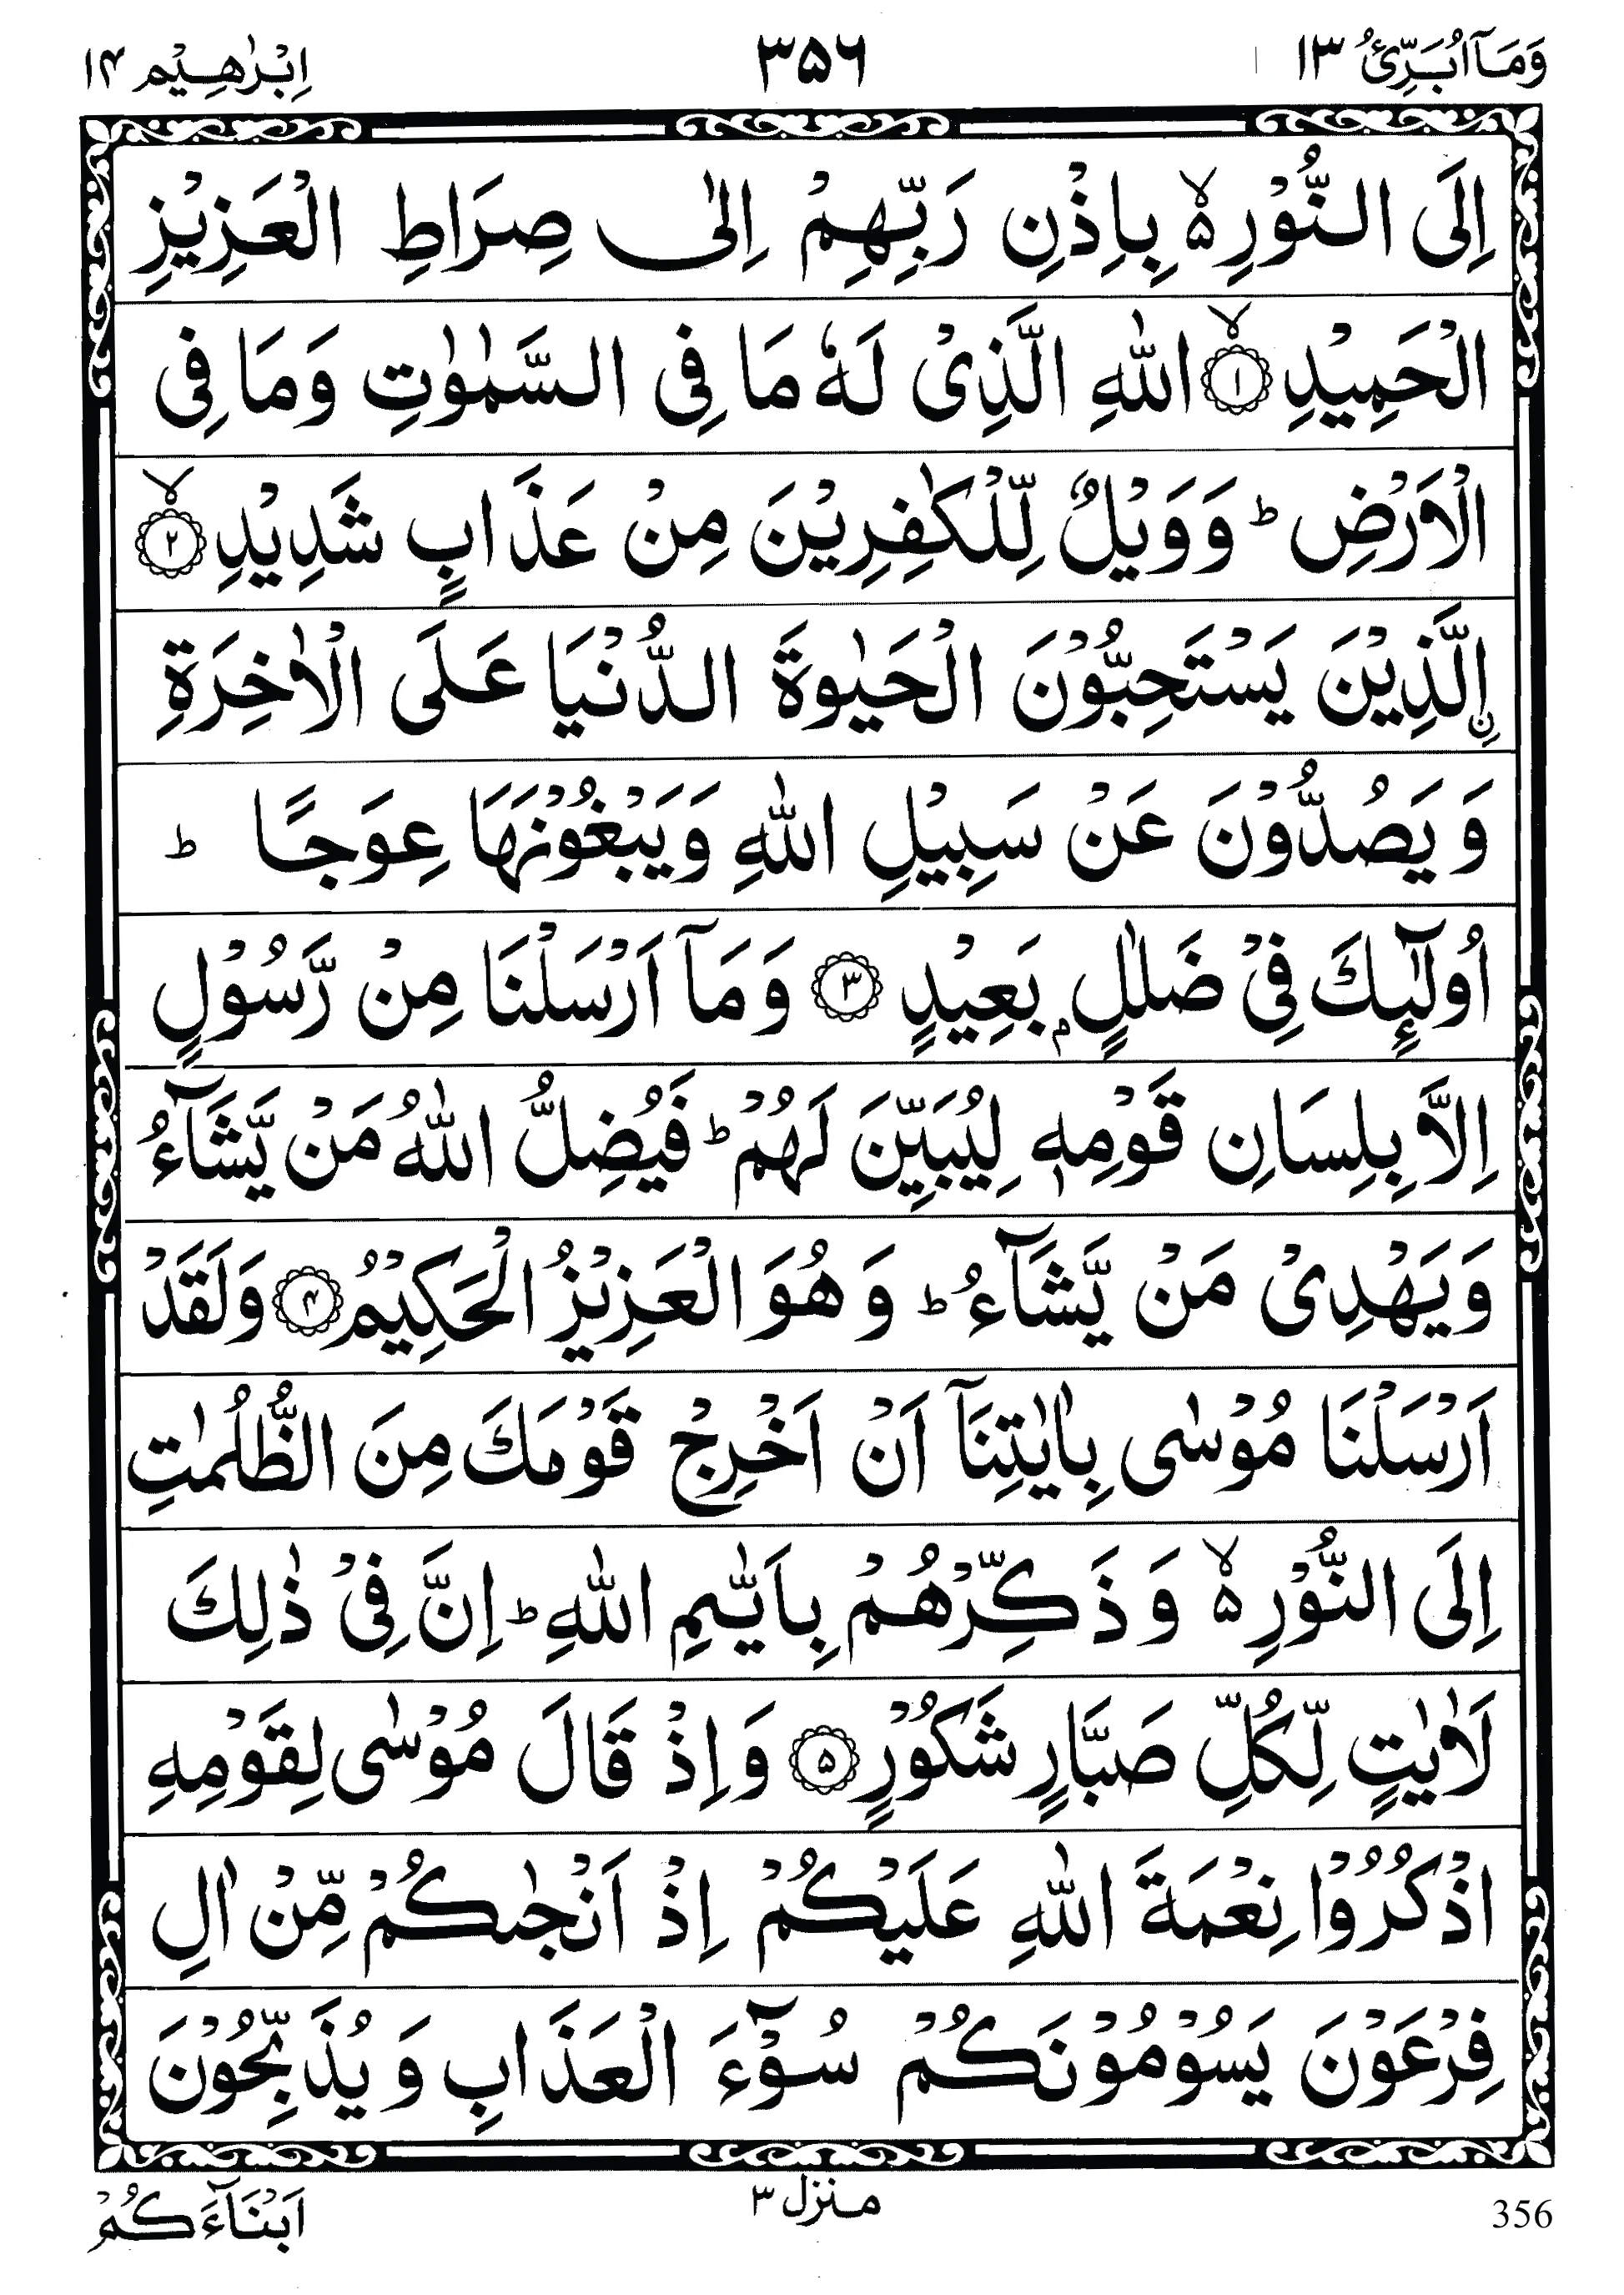 وَمَاۤ اُبَرِّئُ ١٣ ٣٥٦ اِبْرٰهِيْم ١٤
اِلَى النُّوْرِ ۙ۬ بِاِذْنِ رَبِّهِمْ اِلٰى صِرَاطِ الْعَزِيْزِ
الْحَمِيْدِ ۙ﴿۱﴾ اللّٰهِ الَّذِىْ لَهٗ مَا فِى السَّمٰوٰتِ وَمَا فِى
الْاَرْضِ ؕ وَوَيْلٌ لِّلْكٰفِرِيْنَ مِنْ عَذَابٍ شَدِيْدِ ۙ﴿۲﴾
اۨلَّذِيْنَ يَسْتَحِبُّوْنَ الْحَيٰوةَ الدُّنْيَا عَلَى الْاٰخِرَةِ
وَيَصُدُّوْنَ عَنْ سَبِيْلِ اللّٰهِ وَيَبْغُوْنَهَا عِوَجًا ؕ
اُولٰٓئِكَ فِىْ ضَلٰلٍۭ بَعِيْدٍ ﴿۳﴾ وَمَاۤ اَرْسَلْنَا مِنْ رَّسُوْلٍ
اِلَّا بِلِسَانِ قَوْمِهٖ لِيُبَيِّنَ لَهُمْ ؕ فَيُضِلُّ اللّٰهُ مَنْ يَّشَآءُ
وَيَهْدِىْ مَنْ يَّشَآءُ ؕ وَهُوَ الْعَزِيْزُ الْحَكِيْمُ ﴿۴﴾ وَلَقَدْ
اَرْسَلْنَا مُوْسٰى بِاٰيٰتِنَاۤ اَنْ اَخْرِجْ قَوْمَكَ مِنَ الظُّلُمٰتِ
اِلَى النُّوْرِ ۙ۬ وَذَكِّرْهُمْ بِاَيّٰىمِ اللّٰهِ ؕ اِنَّ فِىْ ذٰلِكَ
لَاٰيٰتٍ لِّكُلِّ صَبَّارٍ شَكُوْرٍ ﴿۵﴾ وَاِذْ قَالَ مُوْسٰى لِقَوْمِهِ
اذْكُرُوْا نِعْمَةَ اللّٰهِ عَلَيْكُمْ اِذْ اَنْجٰىكُمْ مِّنْ اٰلِ
فِرْعَوْنَ يَسُوْمُوْنَكُمْ سُوْٓءَ الْعَذَابِ وَيُذَبِّحُوْنَ
اَبْنَآءَكُمْ
منزل ٣
356